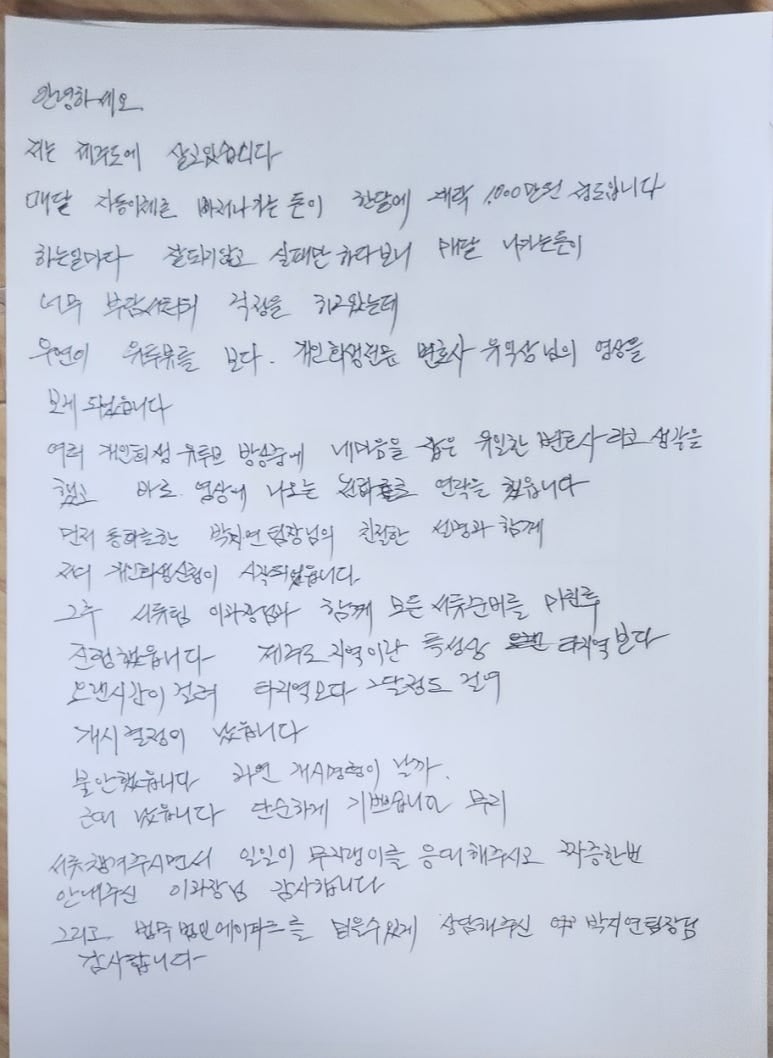 안녕하세오
저는 제주도에 살고있습니다
매달 자동이체로 빠저나가는 돈이 한달에 계략 1,000만원 정도입니다
하는일마다 잘되지않고 실패만 하다보니 매달 나가는돈이
너무 부담서러워 걱정을 하고있는데
우연이 유투뷰를 보다. 개인회생전문 변호사 유익상님의 영상을
보게 되었습니다
여러 개인회생 유투브 방송중에 내마음을 잡은 유일한 변호사 라고 생각을
했고 바로 영상에 나오는 전화로 연락을 했읍니다
먼저 통화를한 박지연팀장님의 친절한 설명과 함게
저의 개인회생신청이 시작되었읍니다
그후 서류팀 이과장님과 함께 모든 서류준비를 마친후
진행했읍니다 제주도 지역이란 특성상 타지역보다
오랜시간이 걸려 타지역보다 2달정도 걸여
개시결정이 났읍니다
불안했읍니다 과연 개시결정이 날까.
근데 났읍니다 단순하게 기쁘습니다 무리
서류챙겨주시면서 일일이 무지랭이를 응대해주시고 짜증한번
안내주신 이과장님 감사합니다
그리고 법무법인에이파트를 믿을수있게 상담해주신 박지연팀장님
감사합니다